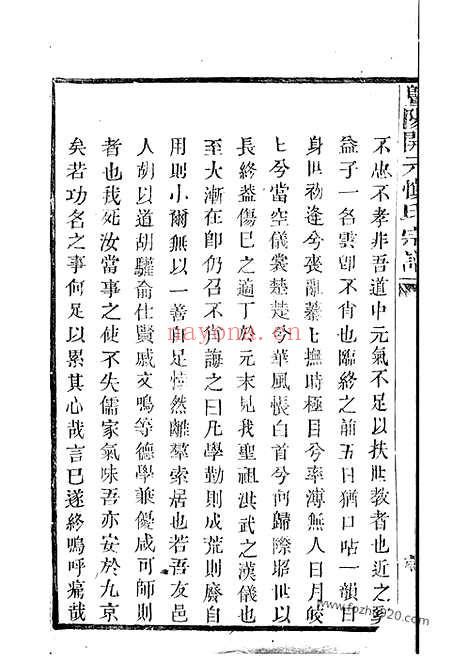 暨陽開元慎氏宗譜
不忠不孝非吾道中元氣不足以扶世教者也近之
益子一名雲卽不肖也臨終之前五日猶口占一韻曰
身世初逢兮喪亂摹七撫時極目兮率溥無人日月皎
七兮當空儀裳楚楚兮華風悵白首兮何歸際熈世以
長終葢傷巳之適丁於元末見我聖祖洪武之漢儀也
至大漸在卽仍召不肖誨之曰凡學勤則成荒則廢自
用則小爾無以一善自足悻然離羣索居也若吾友邑
人胡以道胡驩俞仕賢戚文鳴等德學兼優咸可師則
者也我死汝當事之使不失儒家氣味吾亦安於九京
矣若功名之事何足以累其心哉言巳遂終嗚呼痛哉
nayona.cn
www.fozhu920.com